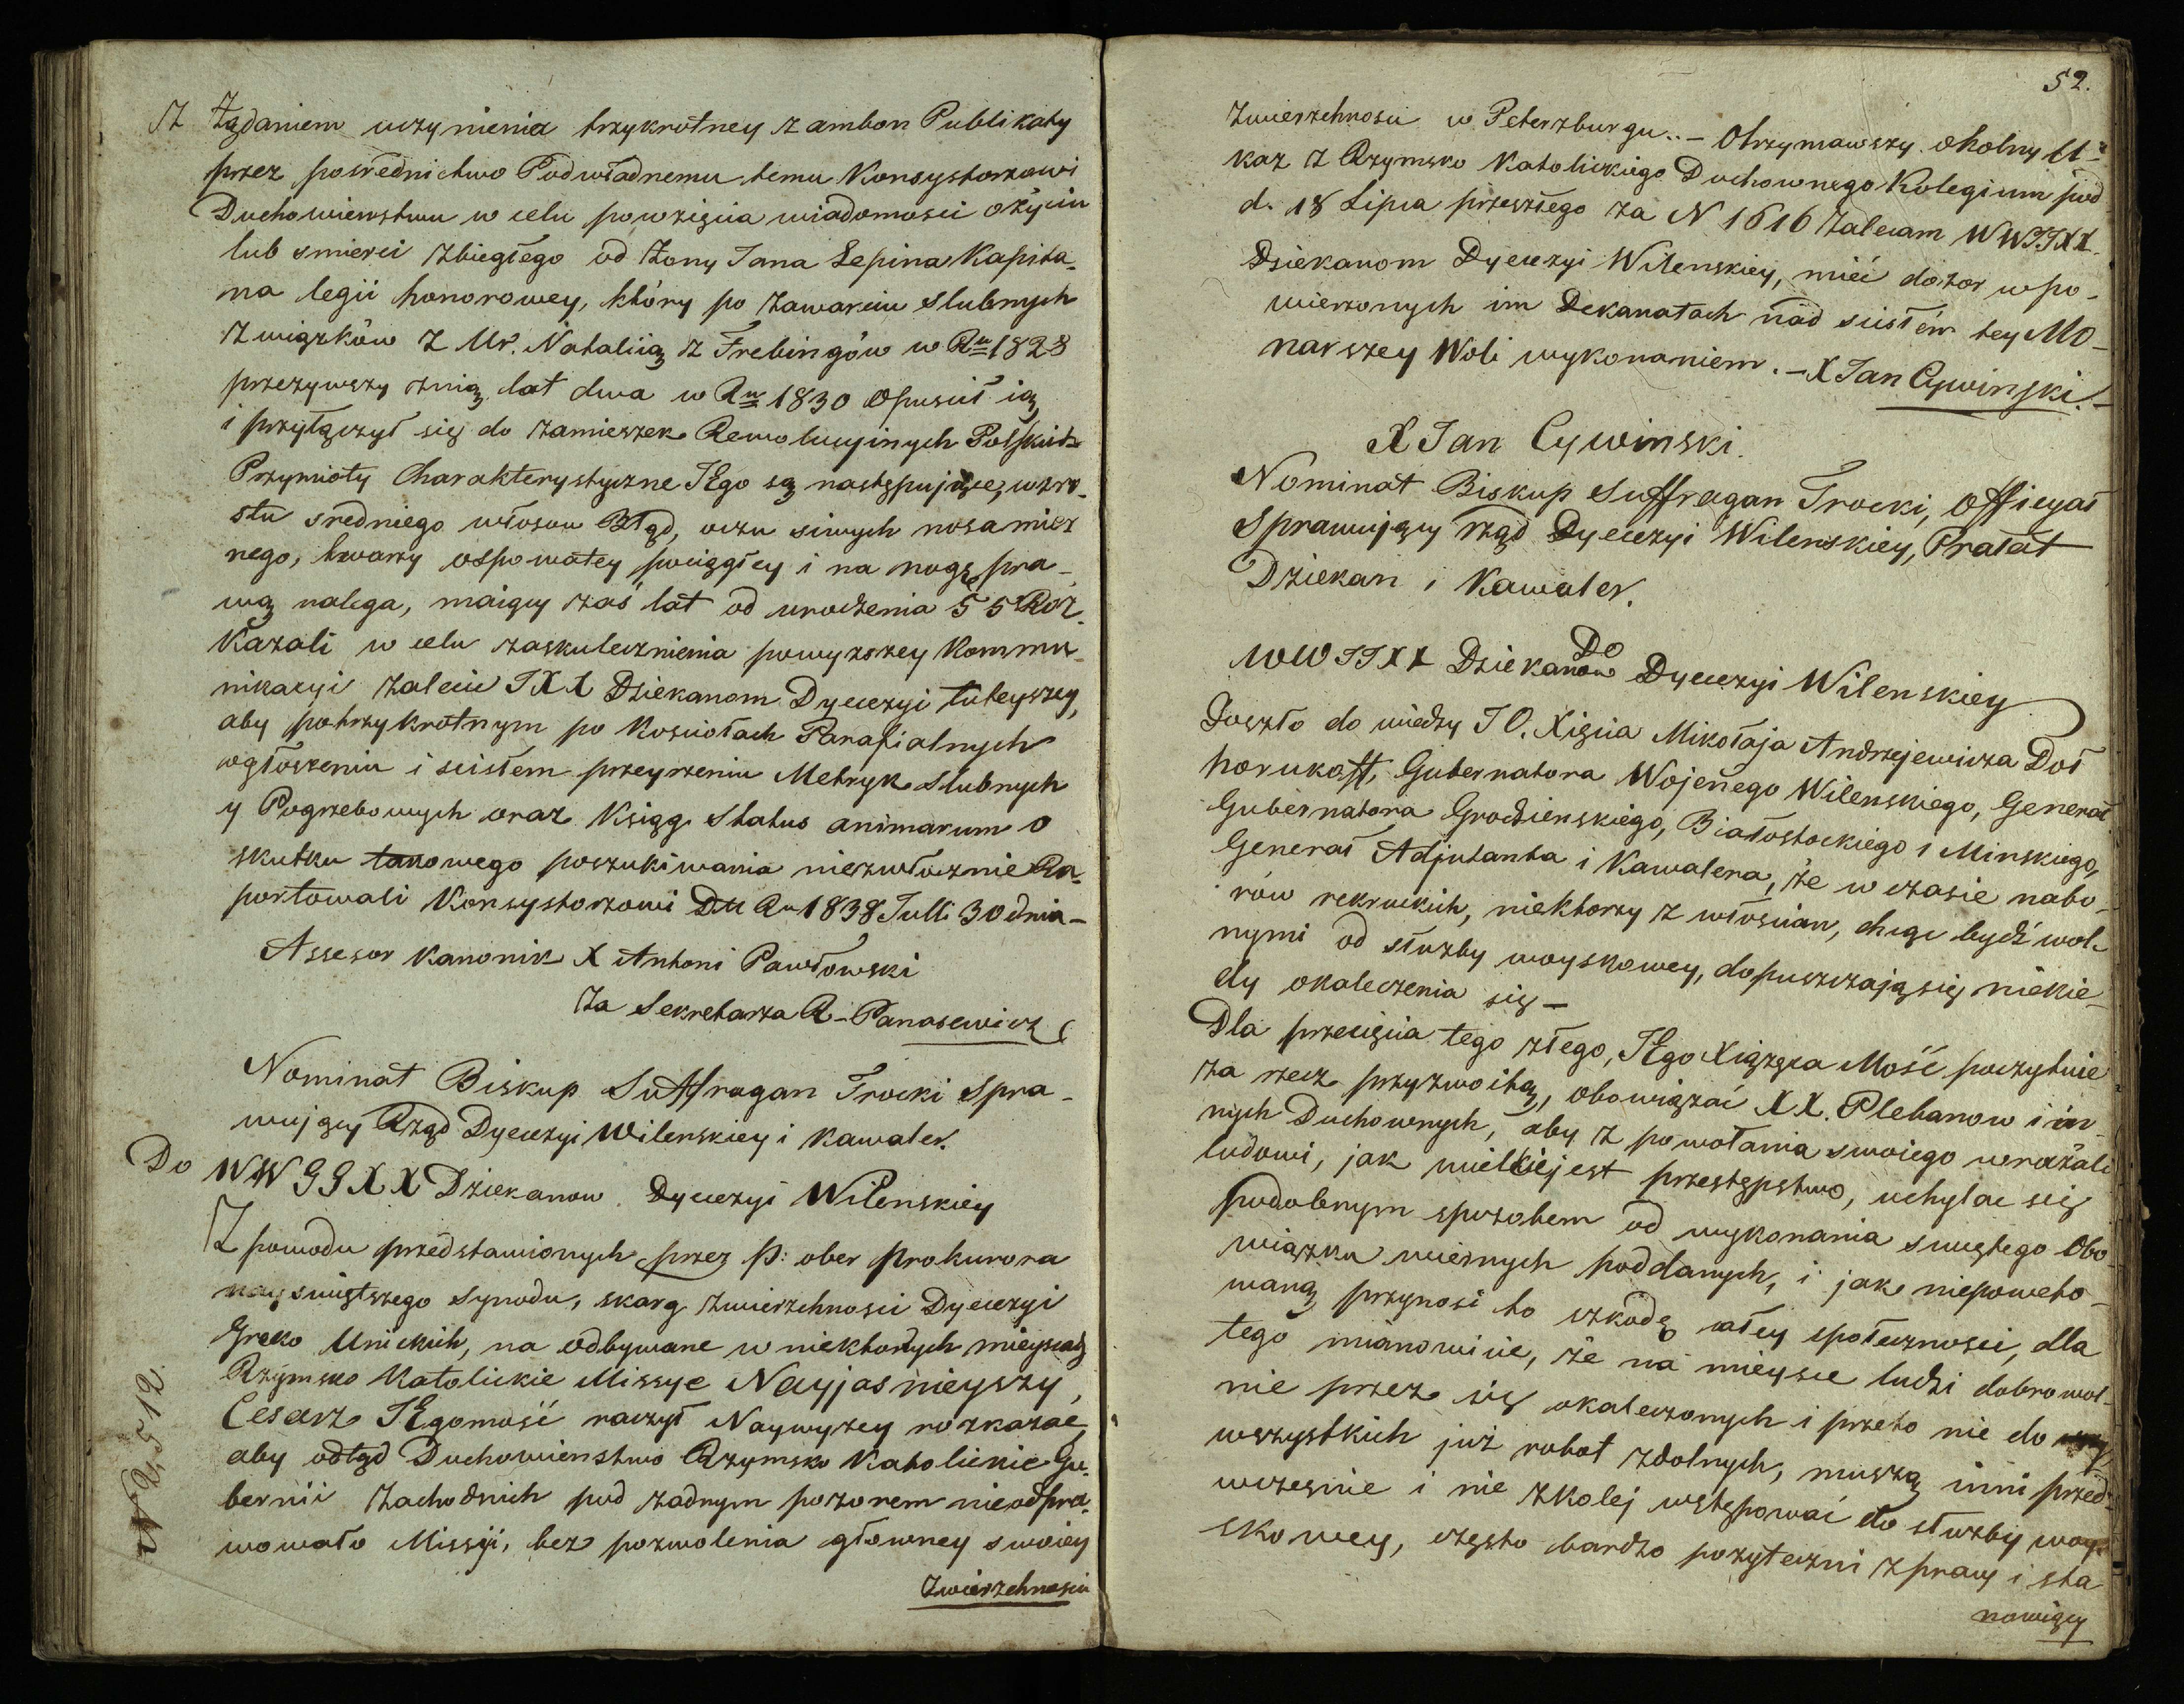 z żądaniem uczynienia trzykrotney z ambon Publikaty
przez posrednictwo Podwładnemu temu Konsystorzowi
Duchowienstwu w celu powzięcia wiadomosci o życiu
lub smierci zbiegłego od żony Jana Lepina Kapita-
na legii honorowey, który po zawarciu slubnych
związków z Ur. Nataliią z Frebingów w Ru 1828
przeżywszy znią lat dwa w Ru 1830 opuscił ią
i przyłączył się do zamieszek Rewolucyinych Polskich
Przymioty Charakterystyczne JEgo są następujące, wzro-
stu sredniego włosow Błąd, oczu siwych nosa mier
nego, twarzy ospowatey pociągłey i na nogę pra-
wą nalega, maiący zaś lat od urodzenia 55 Roz-
kazali w celu zaskutecznienia powyższey Kommu-
nikacyi zalecić JXX Dziekanom Dyecezyi tuteyszey,
aby potrzykrotnym po Kosciołach Parafialnych
ogłoszeniu i scisłem przeyrzeniu Metryk slubnych
y Pogrzebowych oraz Ksiąg status animarum o
skutku takowego poszukiwania niezwłocznie Ra-
portowali Konsystorzowi Dtt Ru 1838 Julli 30 dnia -
Assesor Kanonik X Antoni Pawłowski
Za Sekretarza R-Panasewicz
Nominat Biskup Suffragan Trocki Spra-
wujący Rząd Dyecezyi Wilenskiey i Kawaler.
Do WWJJXX Dziekanow Dyecezyi Wilenskiey
N 2,512.
Z powodu przedstawionych przez p: ober prokurora
nayswiętszego Synodu, skarg zwierzchnosci Dyecezyi
Greko Unickich, na odbywane w niektorych mieyscach
Rzymsko Katolickie Missye Nayjasnieyszy,
Cesarz JEgomość raczył Naywyżey rozkazać,
aby odtąd Duchowienstwo Rzymsko Katolickie Gu-
bernii Zachodnich pod żadnym pozorem nieodpra-
wowało Missji, bez pozwolenia głowney swoiey
Zwierzchnosci
52.
Zwierzchnosci w Peterzburgu.. - Otrzymawszy okolny U-
kaz z Rzymsko Katolickiego Duchownego Kolegium pod
d. 18 Lipca przeszłego za N 1616 Zalecam WWJJXX
Dziekanom Dyecezyi Wilenskiey, mieć dozor w po-
wierzonych im Dekanatach nad scisłém tey Mo-
narszey Woli wykonaniem. - X Jan Cywinski. -
X Jan Cywinski.
Nominat Biskup Suffragan Trocki, Officyał
Sprawujący rząd Dyecezyi Wilenskiey, Prałat
Dziekan i Kawaler.
Do
WWJJXX Dziekanow Dyecezyi Wilenskiey
Doszło do wiedzy JO. Xięcia Mikołaja Andrzejewicza Doł
horukoff, Gubernatora Wojenego Wilenskiego, Generał
Gubernatora Grodzienskiego, Białostockiego i Minskiego,
Generał Adjutanta i Kawalera, że w czasie nabo-
rów rekruckich, niektorzy z włoscian, chcąc bydź wol-
nymi od służby woyskowey, dopuszczają się niekie-
dy okaleczenia się -
Dla przecięcia tego złego, JEgo Xiążęca Mość poczytuie
za rzecz przyzwoitą, obowiązać XX. Plebanow i in-
nych Duchownych, aby z powołania swoiego wrażali
ludowi, jak wielkie jest przestępstwo, uchylać się
podobnym sposobem od wykonania swiętego Obo-
wiązku wiernych poddanych, i jak niepoweto-
waną przynosi to szkodę całey społecznosci, dla
tego mianowicie, że na mieysce ludzi dobrowol-
nie przez się okaleczonych i przeto nie do
wszystkich już robot zdolnych, muszą inni przed-
wczesnie i nie z kolej wstępować do służby woy-
skowey, często bardzo pożyteczni z pracy i sta
nowiący